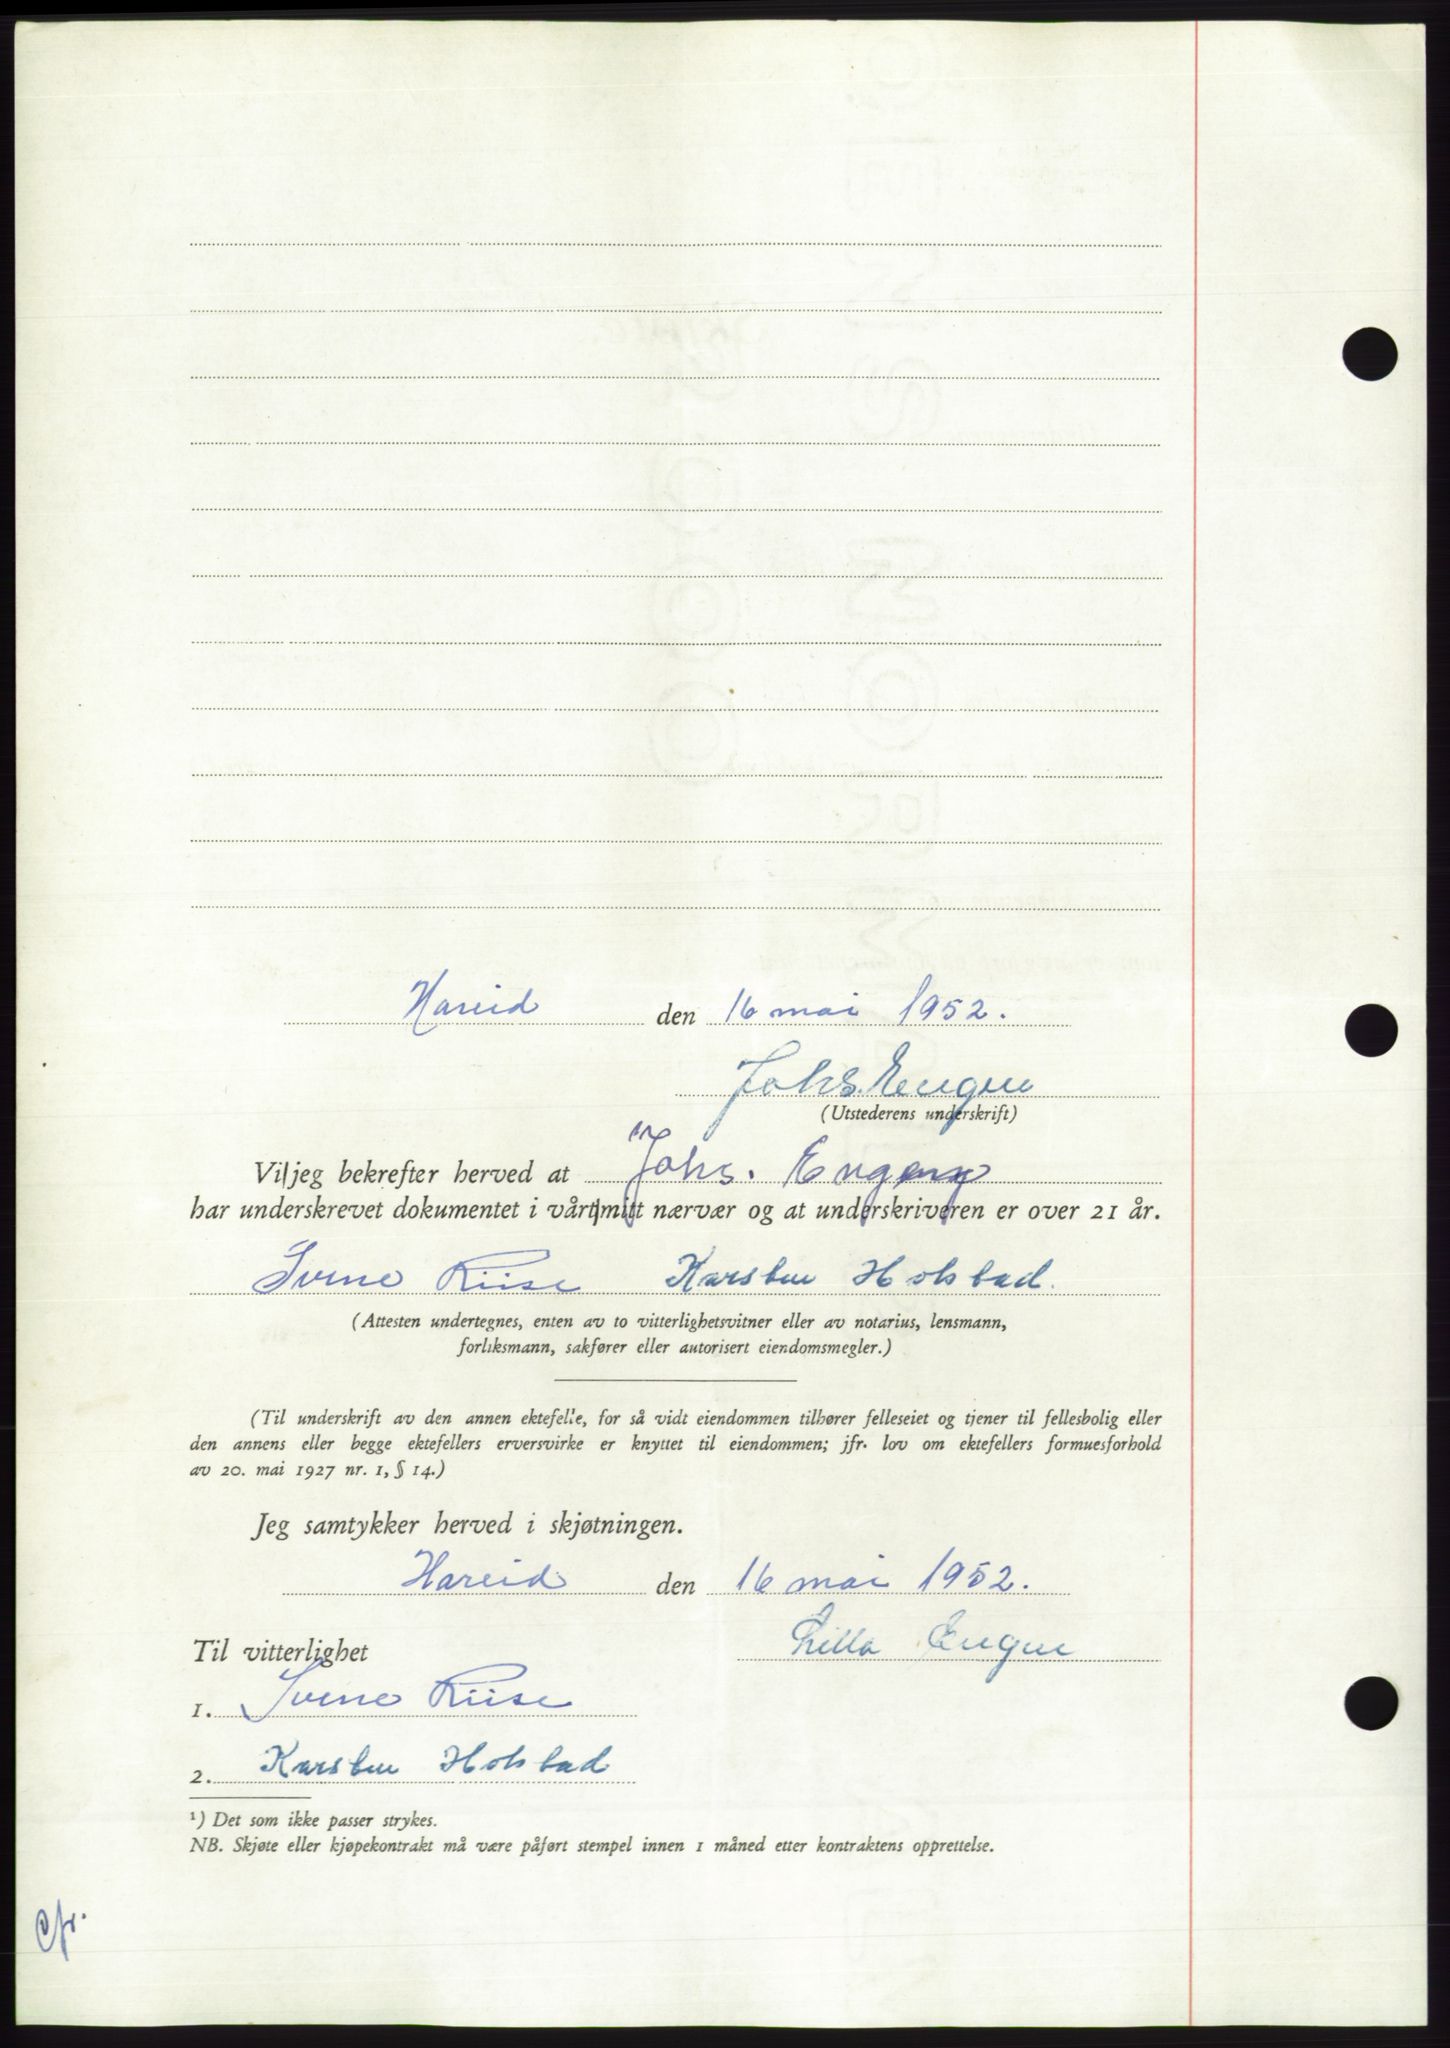 Hareid den 16 mai 1952.
Johs. Engen
(Utstederens underskrift)
Vi/jeg bekrefter herved at Johs. Engen
har underskrevet dokumentet i vårt/mitt nærvær og at underskriveren er over 21 år.
Sverre Riise Karsten Holstad.
(Attesten undertegnes, enten av to vitterlighetsvitner eller av notarius, lensmann,
forliksmann, sakfører eller autorisert eiendomsmegler.)
(Til underskrift av den annen ektefelle, for så vidt eiendommen tilhører felleseiet og tjener til fellesbolig eller
den annens eller begge ektefellers erversvirke er knyttet til eiendommen; jfr. lov om ektefellers formuesforhold
av 20. mai 1927 nr. 1, § 14.)
Jeg samtykker herved i skjøtningen.
Hareid den 16 mai 1952.
Lilla Engen
Til vitterlighet
1. Sverre Riise
2. Karsten Holstad
¹) Det som ikke passer strykes.
NB. Skjøte eller kjøpekontrakt må være påført stempel innen 1 måned etter kontraktens opprettelse.